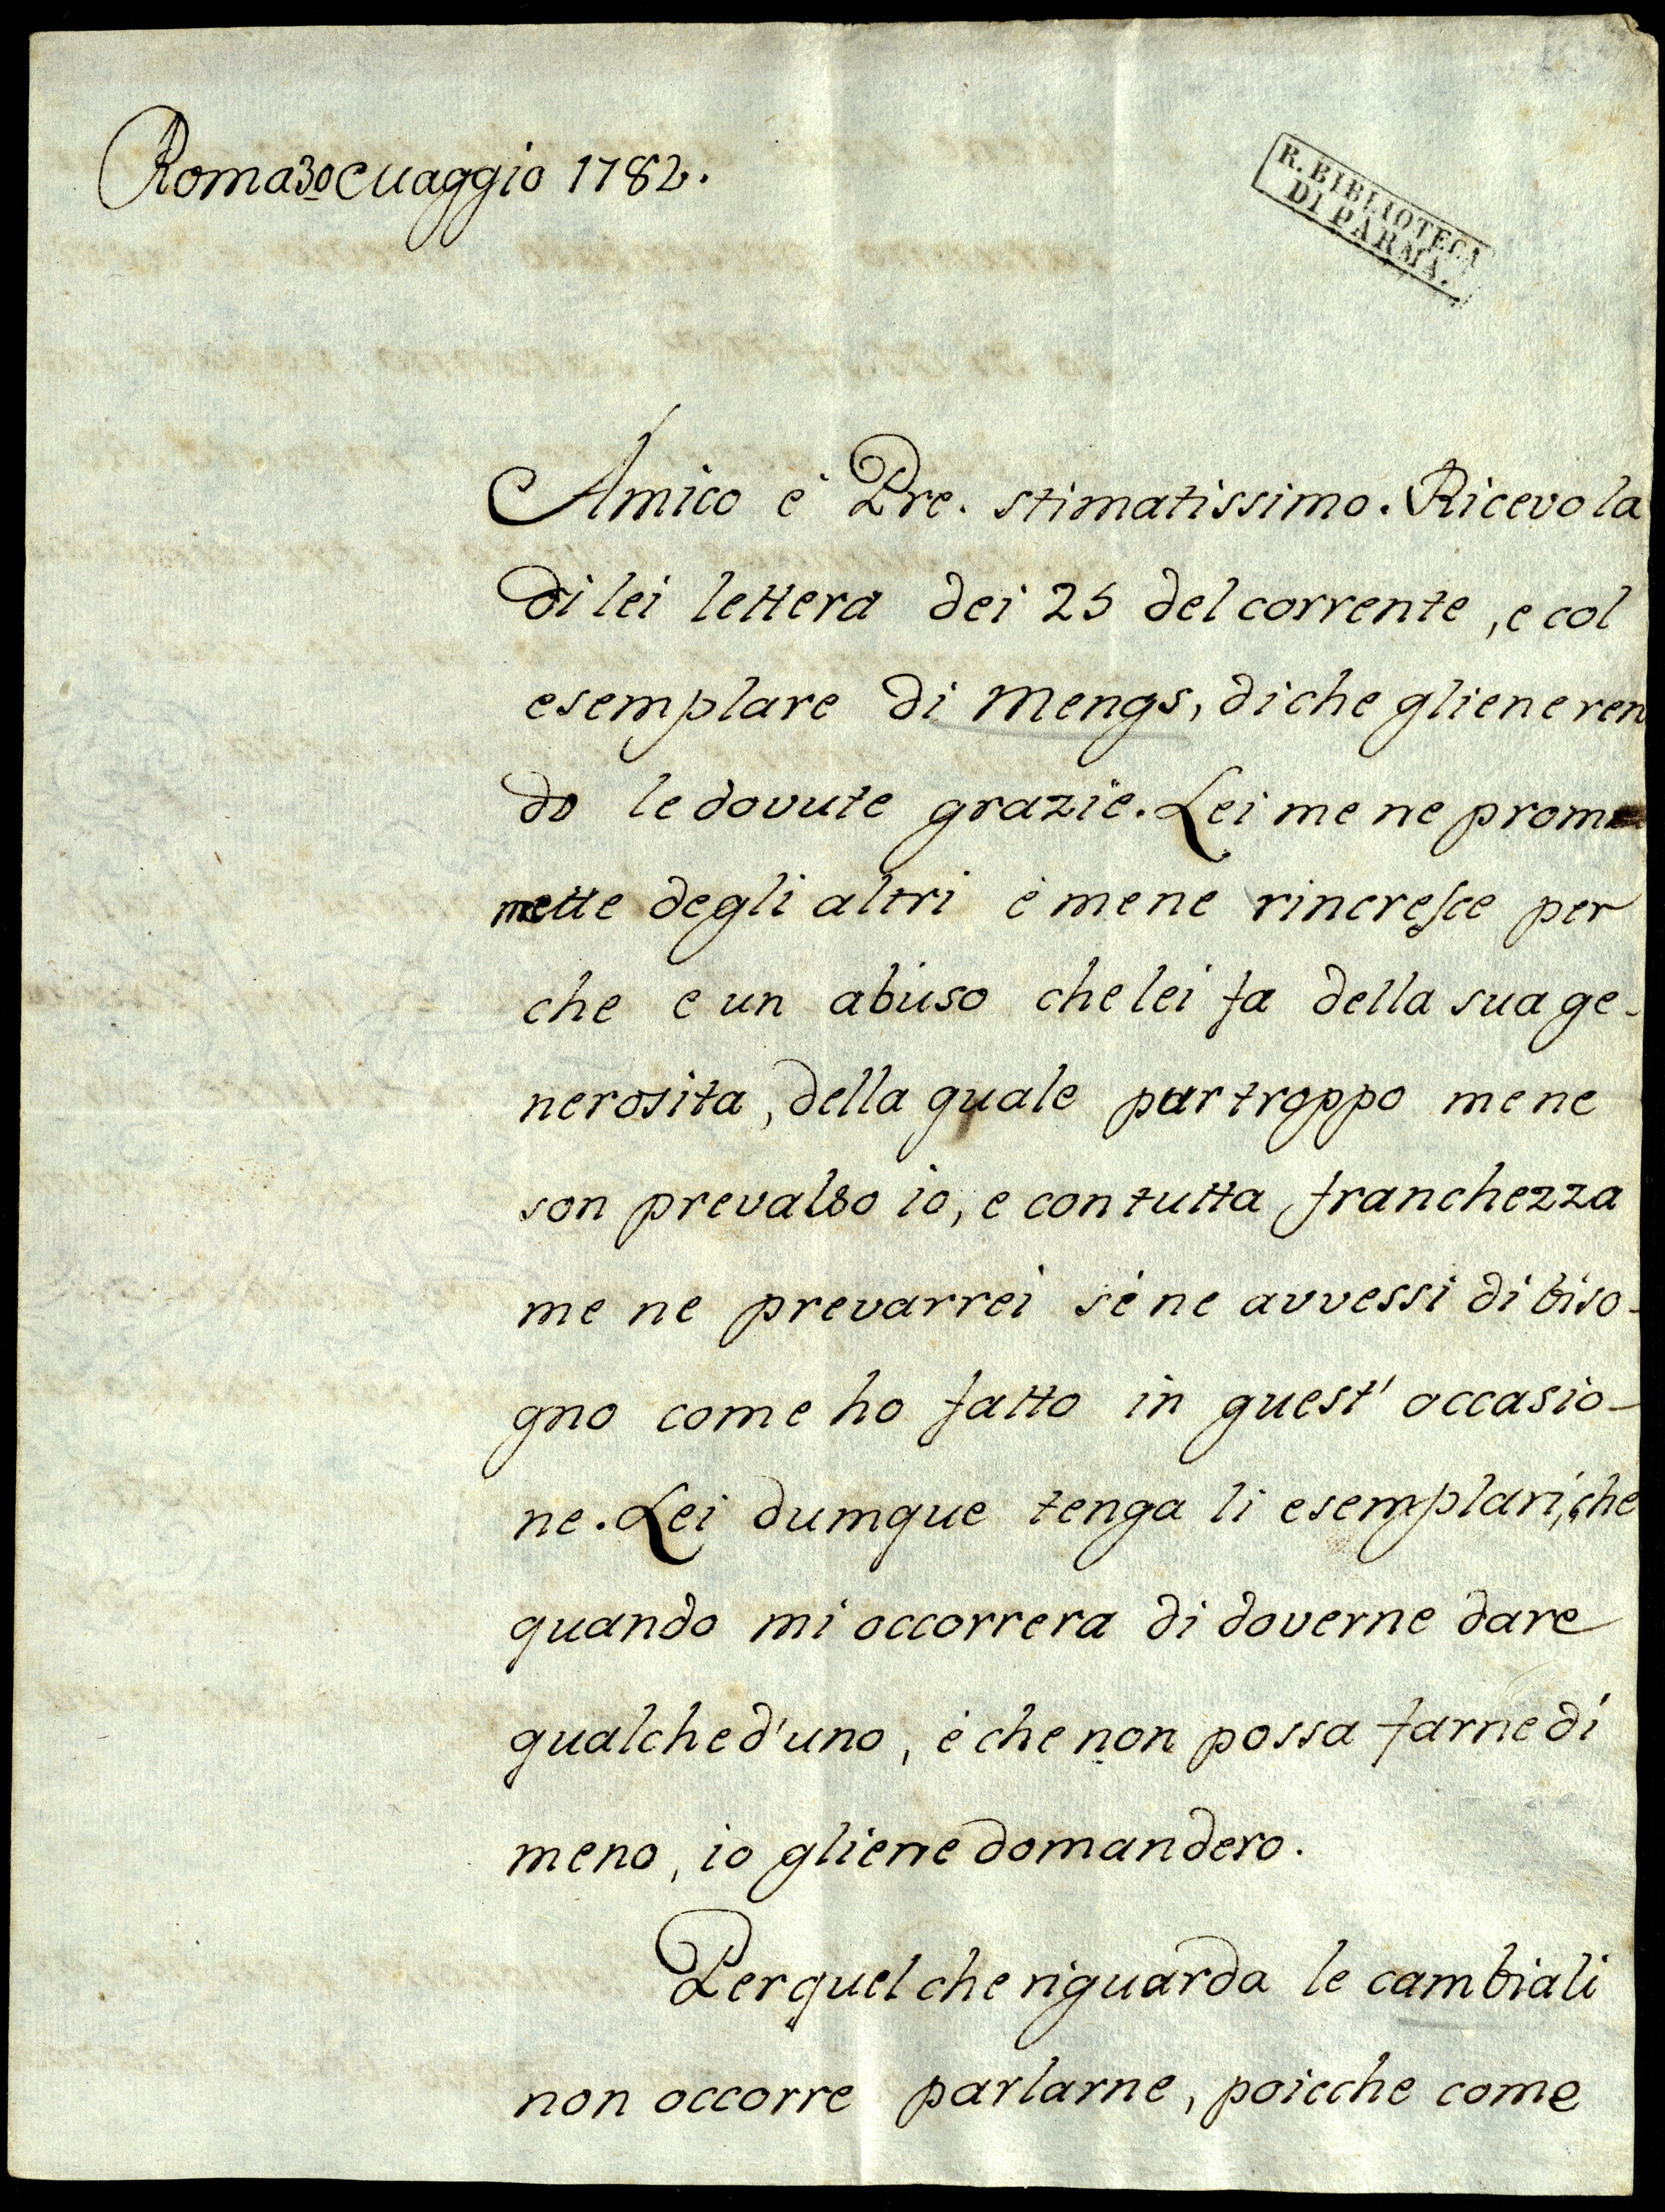 Roma 30 Maggio 1782.
R. BIBLIOTECA
DI PARMA.
Amico e Pre. stimatissimo. Ricevo la
di lei lettera dei 25 del corrente, e col
esemplare di Mengs, di che gliene ren
do le dovute grazie. Lei me ne prom
mette degli altri è me ne rincresce per
che e un abuso che lei fa della sua ge-
nerosita, della quale pur troppo me ne
son prevalso io, e con tutta franchezza
me ne prevarrei se ne avvessi di biso-
gno come ho fatto in quest' occasio-
ne. Lei dumque tenga li esemplari, che
quando mi occorrera di doverne dare
qualched'uno, è che non possa farne di
meno, io gliene domandero.
Per quel che riguarda le cambiali
non occorre parlarne, poicche come